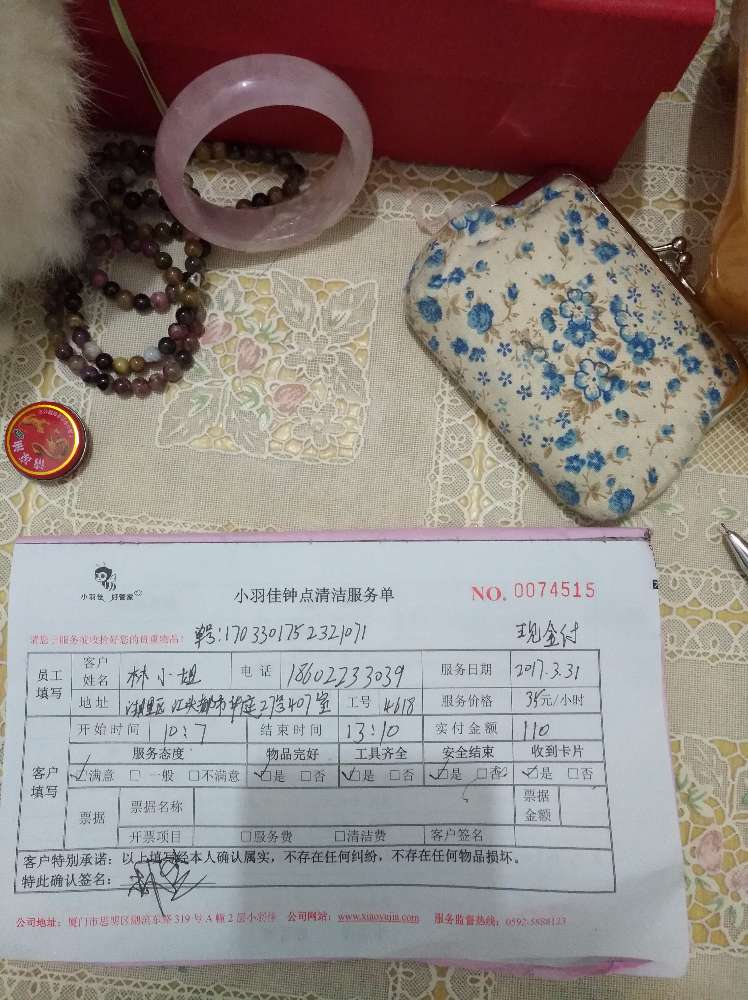 清凉油
小羽佳 好管家
小羽佳钟点清洁服务单
NO. 0074515
请您于服务前收捡好您的贵重物品!
单号:1703301752321071
现金付
员工填写 客户姓名 林小姐 电话 18602233039 服务日期 2017.3.31
地址 湖里区 江头都市华庭27号407室 工号 4618 服务价格 35元/小时
开始时间 10:7 结束时间 13:10 实付金额 110
客户填写 服务态度 物品完好 工具齐全 安全结束 收到卡片
☑满意 □一般 □不满意 ☑是 □否 ☑是 □否 ☑是 □否 ☑是 □否
票据 票据名称 票据金额
开票项目 □服务费 □清洁费 客户签名
客户特别承诺:以上填写经本人确认属实,不存在任何纠纷,不存在任何物品损坏。
特此确认签名:
公司地址:厦门市思明区湖滨东路319号A幢2层小羽佳 公司网站:www.xiaoyujia.com 服务监督热线:0592-5888123